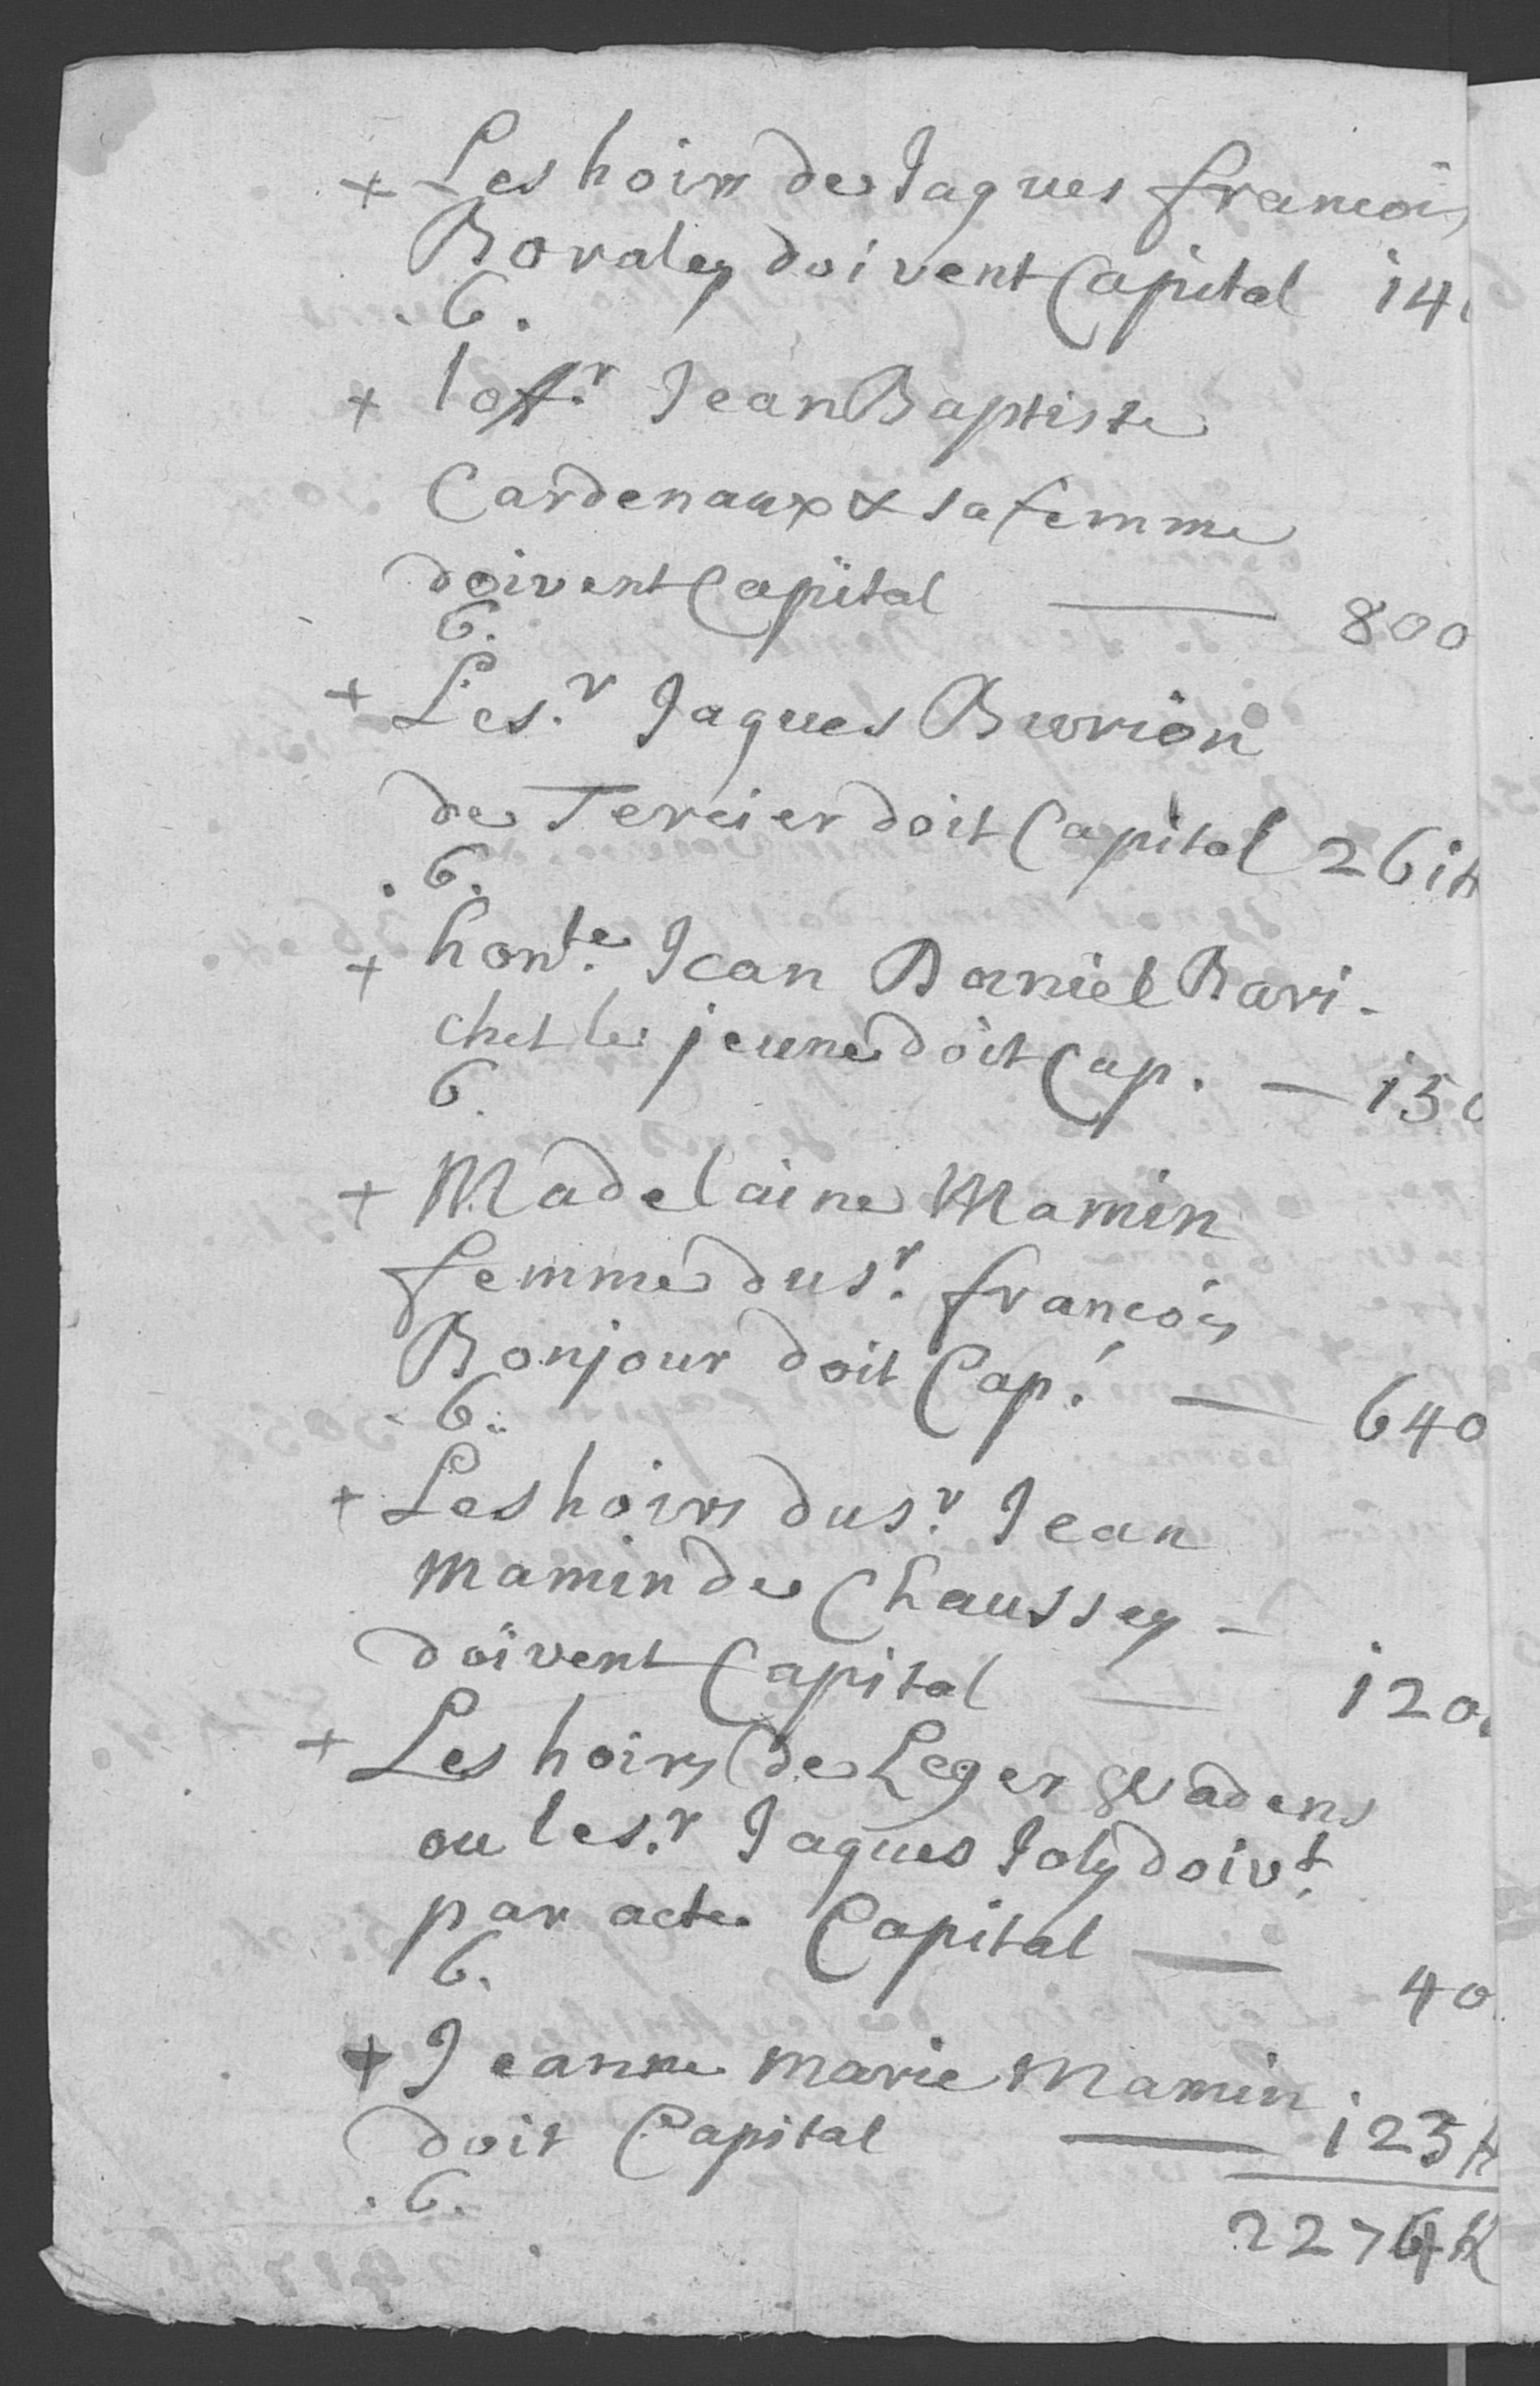 + Les hoirs de Jaques francois
Bovaley doivent Capital 140
. 6 .
+ loff.r Jean Baptiste
Cardenaux & sa femme
doivent Capital — 800
6.
+ Le s.r Jaques Burion
de Tercier doit Capital 261
. 6.
+ hon.te Jean Daniel Bari-
chet le jeune doit Cap. — 150
6.
+ Madelaine Mamin
femme du s.r francois
Bonjour doit Cap.l — 640
. 6.
+ Les hoirs du s.r Jean
mamin de Chaussey —
doivent Capital — 120
+ Les hoirs de Leger
ou le s.r Jaques Joly doiv.t
par acte Capital — 40
6.
+ Jeanne Marie Mamin
doit Capital — 123
. 6.